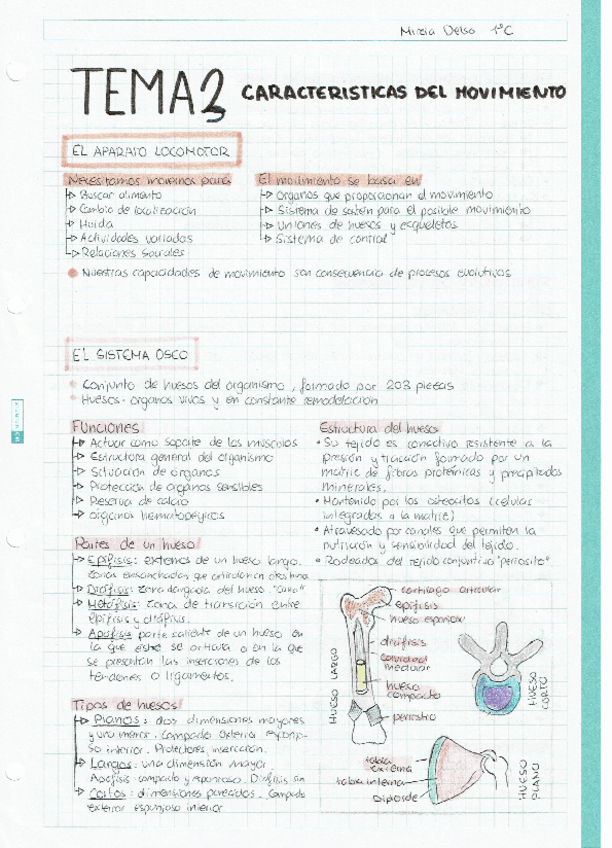 Mireia Delso 1ºC
TEMA 3 CARACTERISTICAS DEL MOVIMIENTO
EL APARATO LOCOMOTOR
Necesitamos movernos para
Buscar alimento
Cambio de localización
Huida
Actividades variadas
Relaciones sociales
El movimiento se basa en
Organos que proporcionan el movimiento
Sistema de sostén para el posible movimiento
Uniones de huesos y esqueletos
Sistema de control
Nuestras capacidades de movimiento son consecuencia de procesos evolutivos
EL SISTEMA OSEO
Conjunto de huesos del organismo, formado por 203 piezas
Huesos- organos vivos y en constante remodelación
Funciones
Actuar como soporte de los músculos
Estructura general del organismo
Situación de órganos
Protección de organos sensibles
Reserva de calcio
organos hematopoyeicos
Partes de un hueso
Epífisis: extremos de un hueso largo.
zonas ensanchadas que articulan en otro hueso
Diáfisis: zona alargada del hueso. "caña"
Metáfisis: zona de transición entre
epífisis y diáfisis.
Apófisis parte saliente de un hueso en
la que este se articula o en la que
se presentan las inserciones de los
tendones o ligamentos.
Tipos de huesos
Planos: dos dimensiones mayores
y una menor. Compacto exterior esponjo-
so interior. Protectores, inserción.
Largos: una dimensión mayor.
Apófisis: compacto y esponjoso. Diáfisis
Cortos: dimensiones parecidas. Compacto
exterior esponjoso interior
Estructura del hueso
Su tejido es conectivo resistente a la
presión y tracción formado por un
matriz de fibras proteínicas y precipitados
minerales.
Mantenido por los osteocitos (células
integradas a la matriz)
Atravesado por canales que permiten la
nutrición y sensibilidad del tejido.
Rodeados del tejido conjuntivo "periostio"
cartílago articular
epífisis
hueso esponjoso
diáfisis
cavidad
medular
hueso
compacto
periostio
HUESO LARGO
HUESO
CORTO
tabla
externa
tabla interna
Diploide
HUESO
PLANO